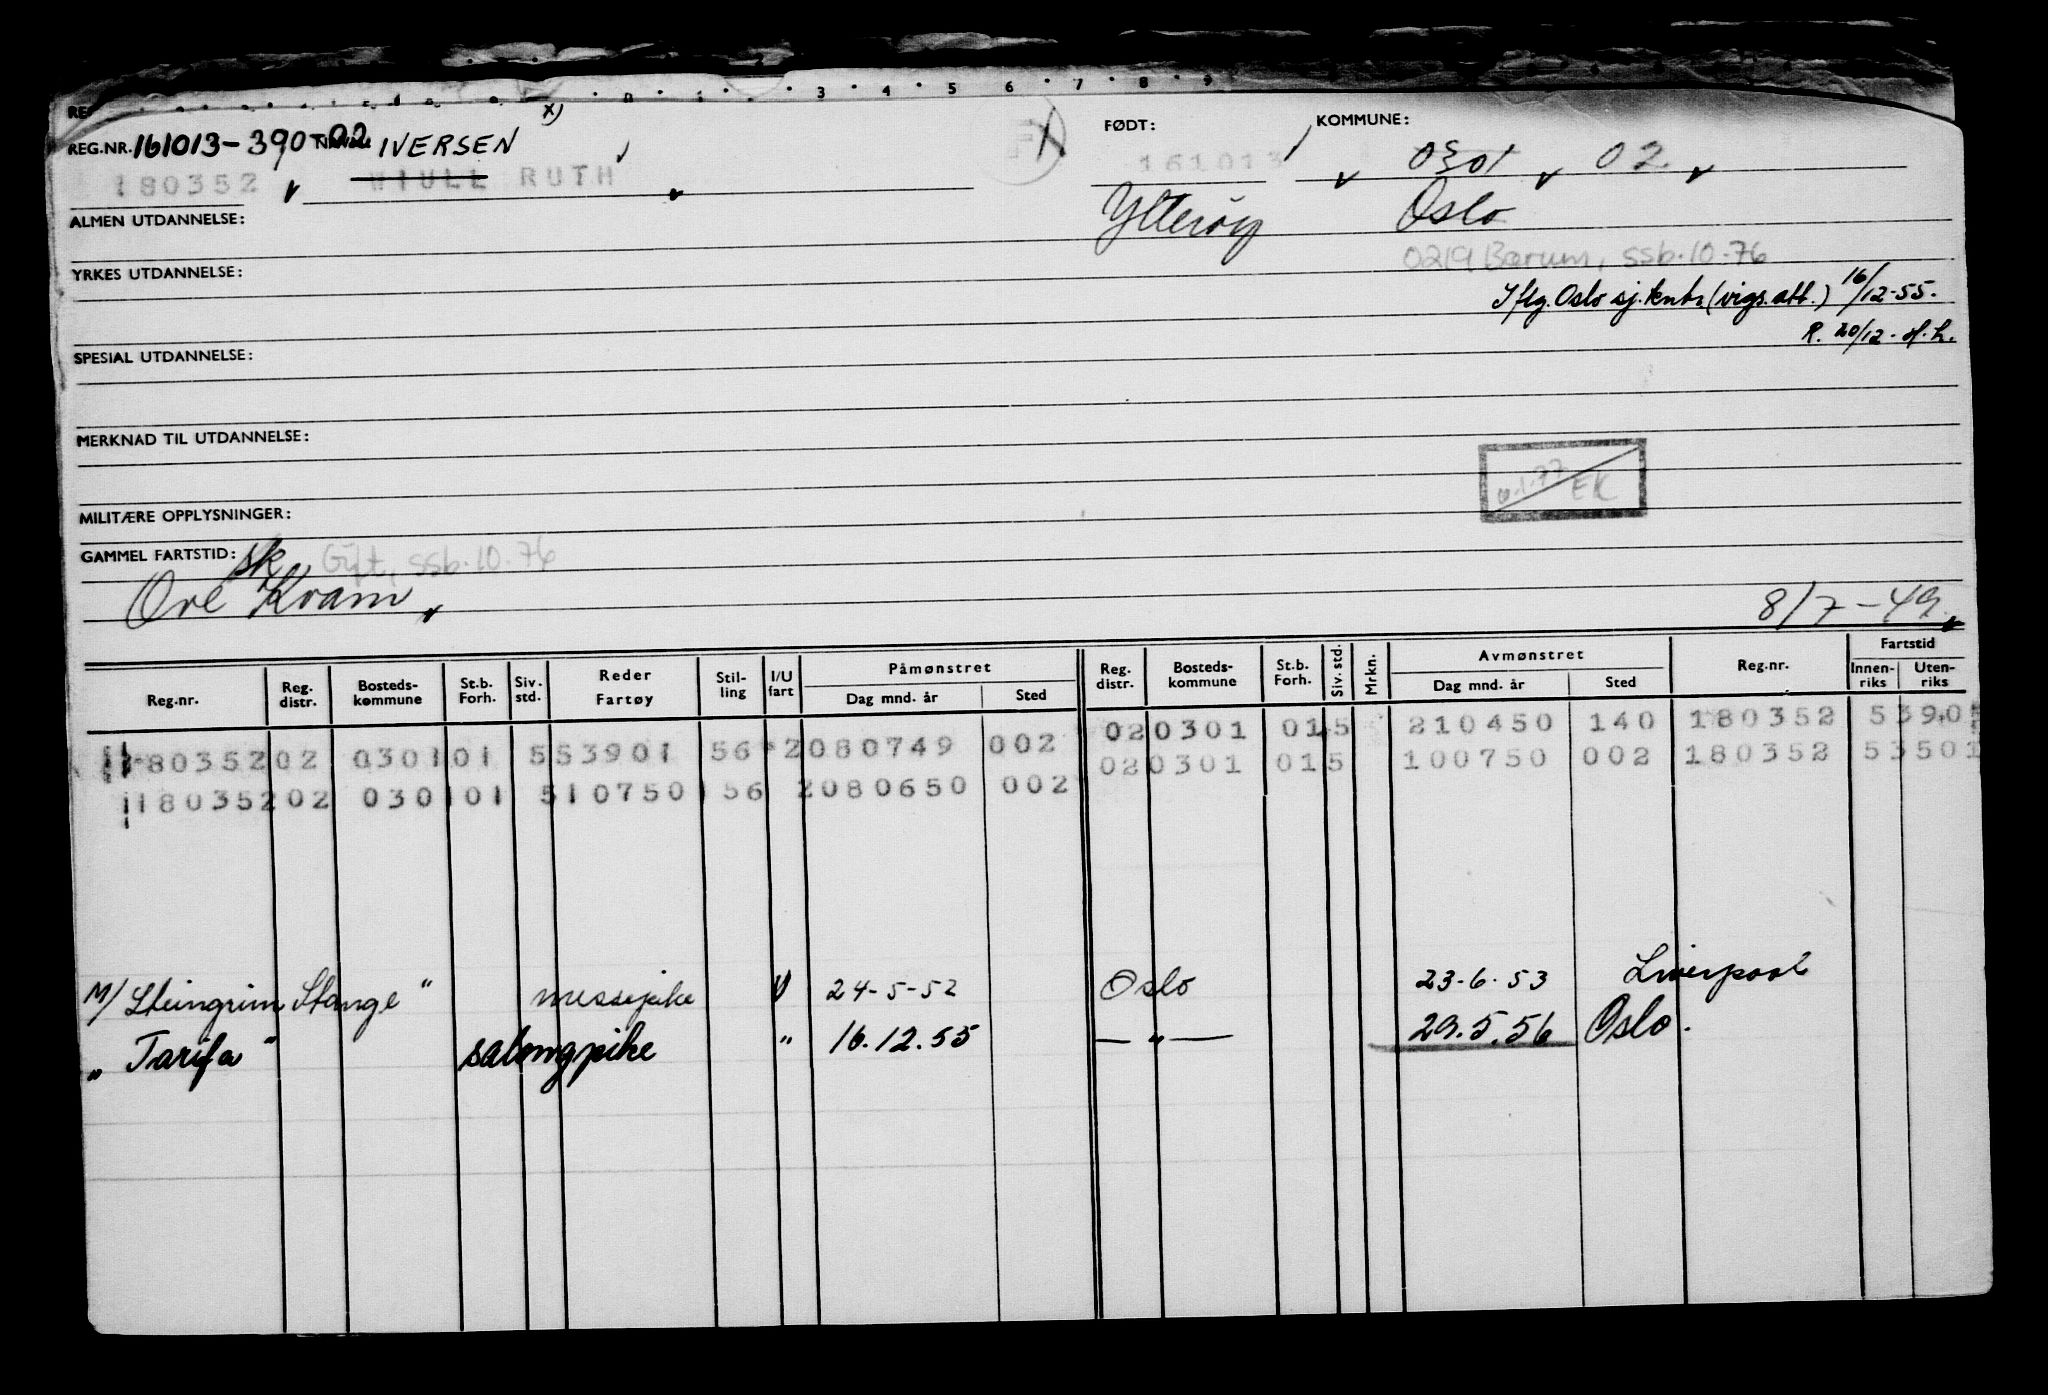 3 4 5 6 7 8 9
x)
REG.NR. 161013-39002 IVERSEN FØDT: KOMMUNE:
180352 HIULL RUTH 161013 0301 02
ALMEN UTDANNELSE: Ytterøy Oslo
YRKES UTDANNELSE: 0219 Bærum, ssb. 10-76
Iflg. Oslo sj.kntr (vigs.att.) 16/12-55.
R. 20/12-
SPESIAL UTDANNELSE:
MERKNAD TIL UTDANNELSE:
EK
MILITÆRE OPPLYSNINGER:
GAMMEL FARTSTID: sk Gift, ssb. 10-76
Ove Kvam 8/7-49
Reg.nr. Reg. distr. Bosteds-kommune St.b. Forh. Siv. std. Reder Fartøy Stil-ling I/U fart Påmønstret Dag mnd. år Sted Reg. distr. Bosteds-kommune St.b. Forh. Siv. std. Mrkn. Avmønstret Dag mnd. år Sted Reg.nr. Fartstid Innen-riks Uten-riks
180352 02 0301 01 5 53901 56 2 080749 002 02 0301 01 5 210450 140 180352 53901
180352 02 0301 01 5 10750 156 2 080650 002 02 0301 01 5 100750 002 180352 53501
M/ Steingrim Stange " messepike U 24-5-52 Oslo 23-6-53 Liverpool
" Tarifa " salongpike " 16.12.55 — " — 29.5.56 Oslo.